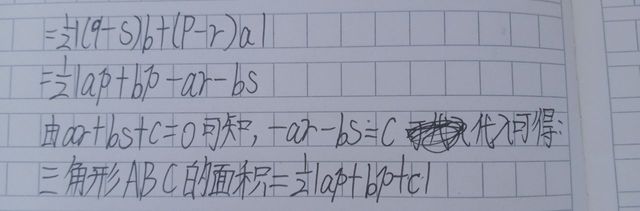 =½|(q-s)b+(p-r)a|
=½|ap+bp-ar-bs
由ar+bs+c=0可知,-ar-bs=c 代入可得:
三角形ABC的面积=½|ap+bp+c|